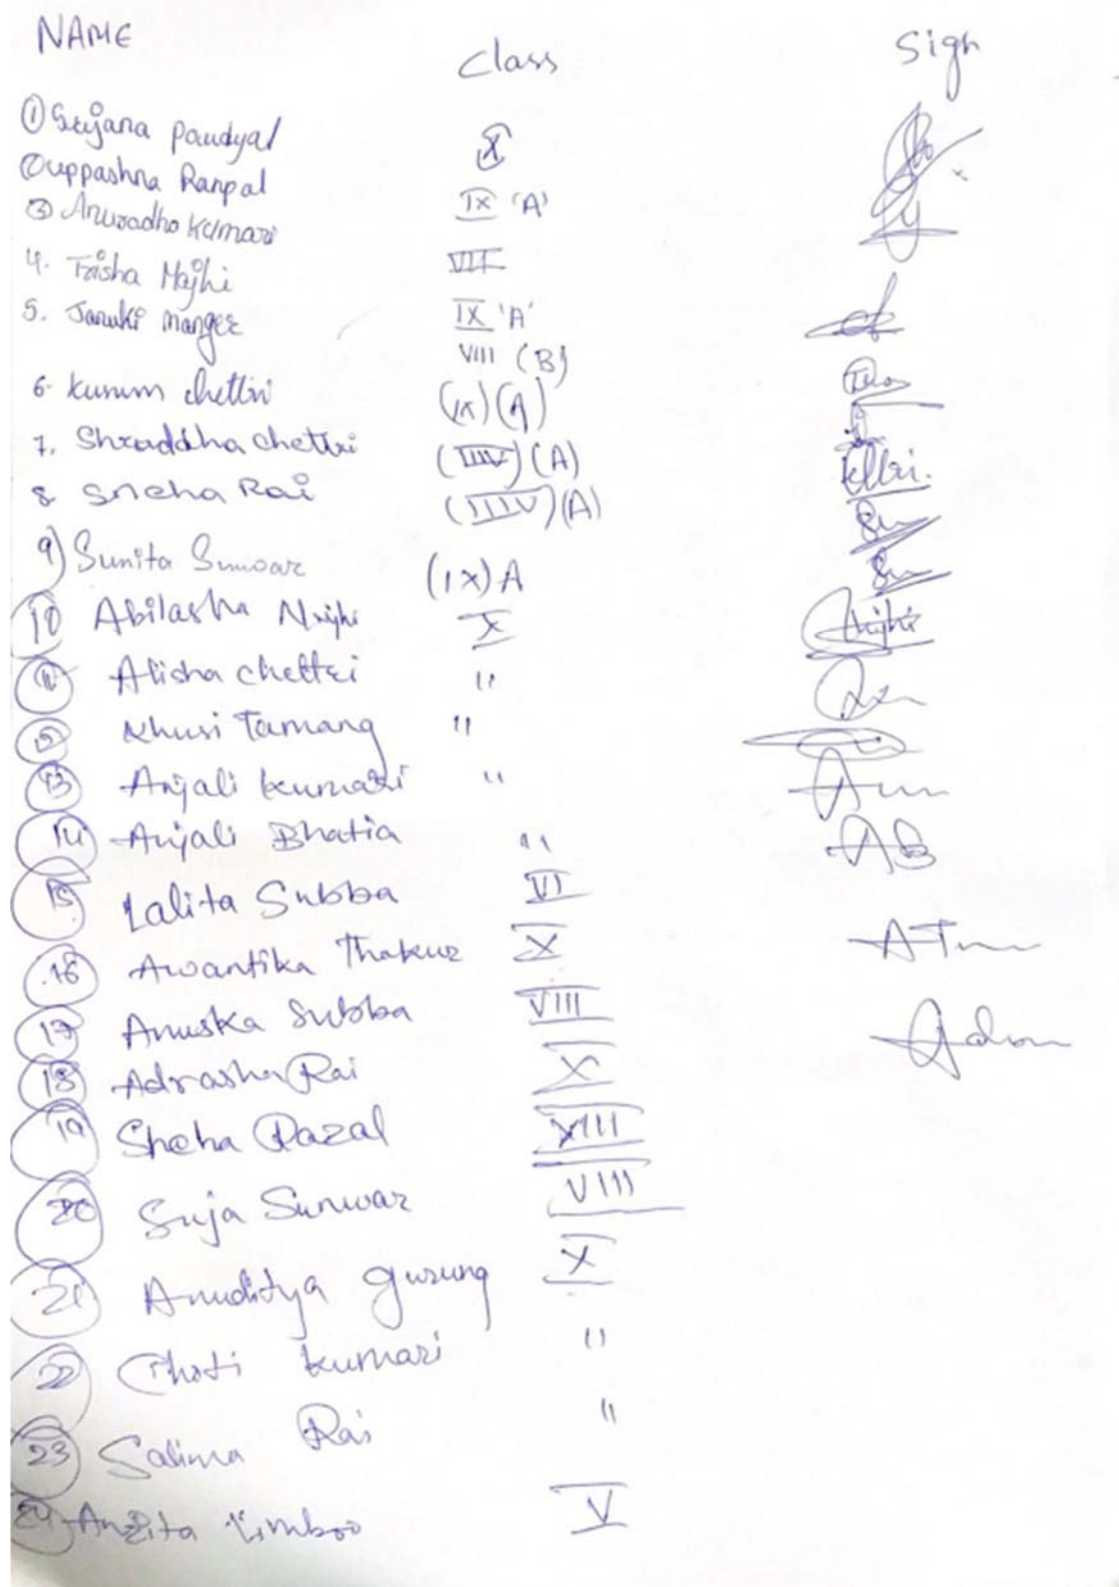 NAME Class Sign
① Srijana Paudyal X
② uppashna Ranpal IX 'A'
③ Anuradha Kumari VII
4. Trisha Majhi IX 'A'
5. Januki manger VIII (B)
6. Kumum chettri (IX) (A)
7. Shraddha chettri (IIIV) (A)
8 Sneha Rai (IIIV) (A)
9) Sunita Sunwar (IX) A
10 Abilasha Majhi X
11 Alisha chettri "
12 Khusi Tamang "
13 Anjali kumari "
14 Anjali Bhatia " AB
15 Lalita Subba VI
16 Awantika Thakur X
17 Anuska Subba VIII
18 Adrasha Rai X
19 Sneha Razal XIII
20 Suja Sunwar VIII
21 Anuditya gurung X
22 Choti kumari "
23 Salima Rai "
24 Anzita Limboo V